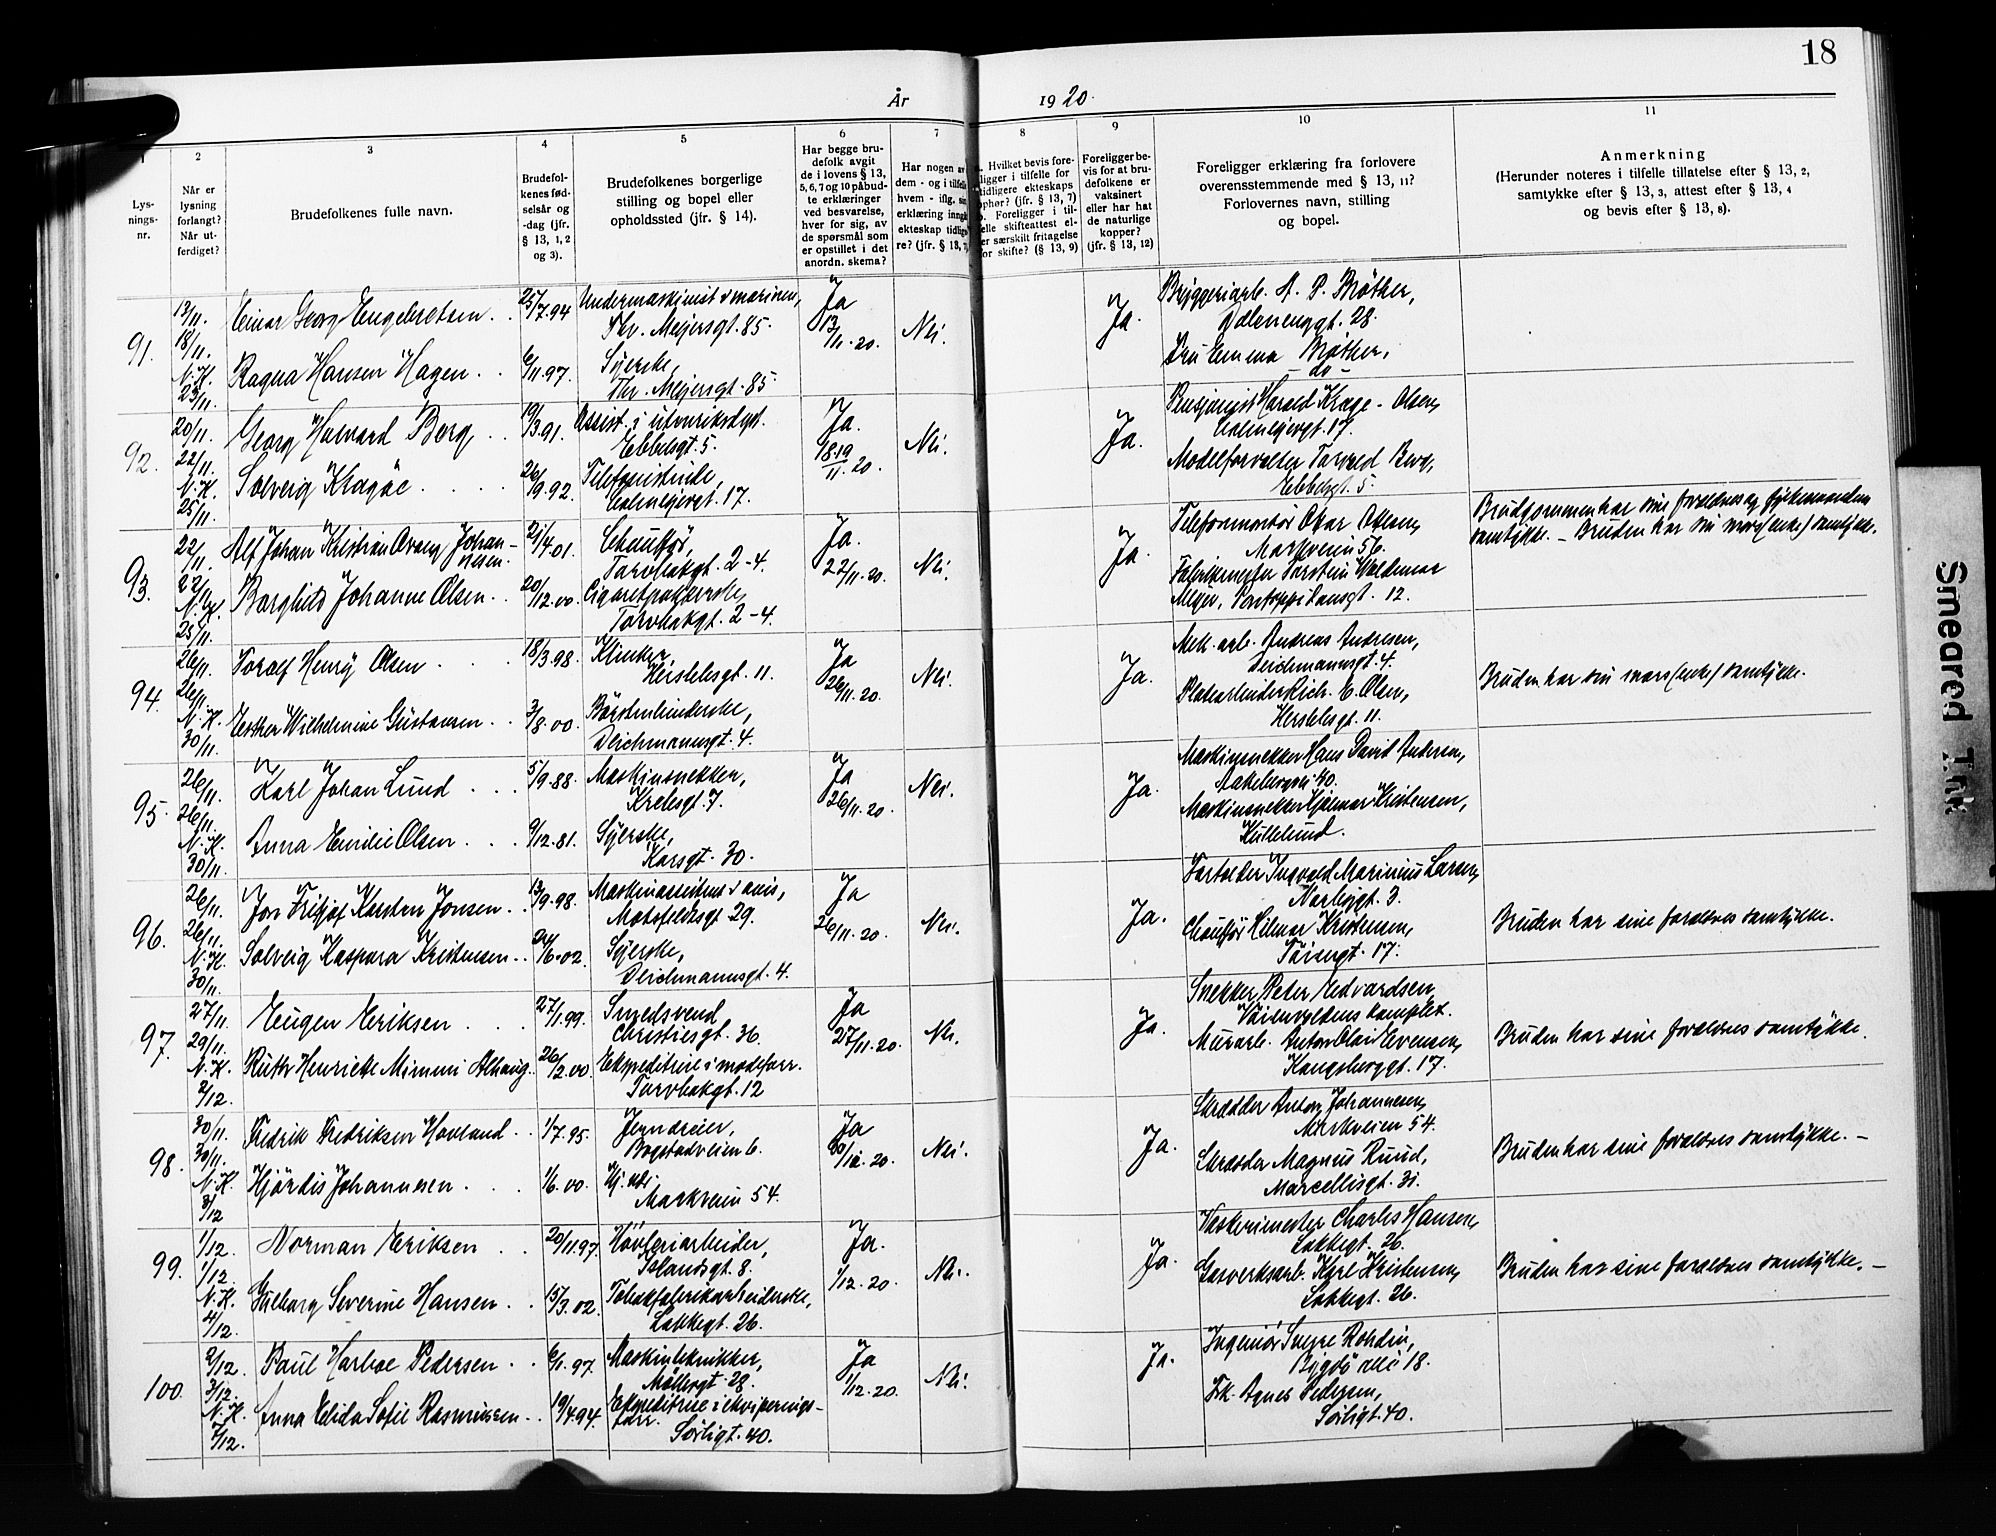 18
År 1920.
1
2
3
4
5
6
7
8
9
10
11
Lys-
nings-
nr.
Når er
lysning
forlangt?
Når ut-
ferdiget?
Brudefolkenes fulle navn.
Brudefol-
kenes fød-
selsår og
-dag (jfr.
§ 13, 1, 2
og 3).
Brudefolkenes borgerlige
stilling og bopel eller
opholdssted (jfr. § 14).
Har begge bru-
defolk avgit
de i lovens § 13,
5, 6, 7 og 10 påbud-
te erklæringer
ved besvarelse,
hver for sig, av
de spørsmål som
er opstillet i det
anordn. skema?
Har nogen av
dem - og i tilfelle
hvem - iflg. sin
erklæring inngått
ekteskap tidlige-
re? (jfr. § 13, 7)
Hvilket bevis fore-
ligger i tilfelle for
tidligere ekteskaps
ophør? (jfr. § 13, 7)
Foreligger i til-
elle skifteattest el-
er særskilt fritagelse
or skifte? (§ 13, 9)
Foreligger be-
vis for at bru-
defolkene er
vaksinert
eller har hat
de naturlige
kopper?
(jfr. § 13, 12)
Foreligger erklæring fra forlovere
overensstemmende med § 13, 11?
Forlovernes navn, stilling
og bopel.
Anmerkning
(Herunder noteres i tilfelle tillatelse efter § 13, 2,
samtykke efter § 13, 3, attest efter § 13, 4
og bevis efter § 13, 8).
91.
13/11.
18/11.
N.H.
23/11.
Einar Georg Engebretsen . .
25/7.94
Undermaskinist i marinen,
Thv. Meyersgt. 85.
Ragna Hansen Hagen . .
6/11.97.
Syerske,
Thv. Meyersgt. 85
Ja
13/11.20.
Nei.
Ja.
Bryggeriarb. A. P. Möther,
Dælenenggt. 28.
Fru Emma Möther,
- do -
92.
20/11.
22/11.
N.H.
25/11.
Georg Halvard Berg . .
19/3.91.
Assist. i utenriksdept.
Ebbelsgt. 5.
Solveig Kragöe . . . .
26/9.92.
Telefonistinde,
17.
Ja.
18. 19/11.20.
Nei.
Ja.
Pensjonist Harald Krage-Olsen,
17.
Modelforvalter Torvald Berg,
Ebbelsgt. 5.
93.
22/11.
22/11.
N.H.
25/11.
Alf Johan Kristian Johan-
nesen.
21/4.01.
Chauffør,
Torvbakgt. 2-4.
Borghild Johanne Olsen . .
20/12.00.
Cigaretpakkerske,
Torvbakgt. 2-4.
Ja.
22/11.20.
Nei.
Ja.
Telefonmontör Oskar Olsen,
Markveien 56.
Fabrikmester Torstein Waldemar
Meyer, Pontoppidansgt. 12.
Brudgommen har sine forældres og fylkesmanden
samtykke. - Bruden har sin mors (enke) samtykke.
94.
26/11.
26/11.
N.H.
30/11.
Toralf Henry Olsen . . .
18/3.98.
Klinker,
Herslebsgt. 11.
Esther Wilhelmine Gustavsen . .
3/8.00.
Börstenbinderske,
Deichmannsgt. 4.
Ja
26/11.20.
Nei.
Ja.
Mek. arb. Andreas Andresen,
Deichmannsgt. 4.
Platearbeider Rich. E. Olsen,
Herslebsgt. 11.
Bruden har sin mors (enke) samtykke.
95.
26/11.
26/11.
N.H.
30/11.
Karl Johan Lund . . .
5/9.88.
Maskinsnekker,
Krebsgt. 7.
Anna Emilie Olsen . . .
9/12.81.
Syerske,
Korsgt. 30.
Ja
26/11.20.
Nei.
Ja.
Maskinsnekker Hans David Andersen,
Aakebergvn. 40.
Maskinsnekker Hjalmar Kristensen,
96.
26/11.
26/11.
N.H.
30/11.
Jon Fritjof Karsten Jonsen . .
13/9.98.
Maskinassistent i avis,
Motzfeldtsgt. 29.
Solveig Kaspara Kristensen . .
24/6.02.
Syerske,
Deichmannsgt. 4.
Ja
26/11.20.
Nei.
Ja.
Ingvald Marinius Larsen,
Norbygt. 3.
Chauffør Hilmar Kristensen,
Töiengt. 17.
Bruden har sine forældres samtykke.
97.
27/11.
29/11.
N.H.
2/12.
Eugen Eriksen . . .
27/1.99.
Smedsvend
Christiesgt. 36.
Ruth Henriette Mimmi Olhaug . .
26/2.00.
Ekspeditrise i modeforr.
Torvbakgt. 12
Ja
27/11.20.
Nei.
Ja.
Snekker Peter Edvardsen,
Murarb. Anton Olai Evensen,
Kongsberggt. 17.
Bruden har sine forældres samtykke.
98.
30/11.
30/11.
N.H.
3/12
Fredrik Fredriksen Hovland . .
1/7.95.
Jerndreier,
Bogstadveien 6.
Hjördis Johannesen . . .
1/6.00.
Markveien 54.
Ja
30/11.20.
Nei.
Ja.
Skrædder Anton Johannesen,
Markveien 54.
Skrædder Magnus Ruud,
Marcellisgt. 31.
Bruden har sine forældres samtykke. -
99.
1/12.
1/12.
N.H.
4/12.
Norman Eriksen . .
20/11.97.
Hövleriarbeider,
Islandsgt. 8.
Gulborg Severine Hansen . .
15/3.02.
Tobakfabrikarbeiderske,
Lakkegt. 26.
Ja.
1/12.20.
Nei.
Ja.
Vaskerimester Charles Hansen,
Lakkegt. 26.
Gasverksarb. Karl Kristensen,
Lakkegt. 26.
Bruden har sine forældres samtykke. -
100.
2/12.
3/12.
N.H.
7/12.
Paul Harboe Pedersen . .
6/1.97.
Maskintekniker,
Möllergt. 28.
Anna Elida Sofie Rasmussen . .
19/4.94.
Ekspeditrise i ekviperings-
forr.
Sörligt. 40.
Ja
1/12.20.
Nei.
Ja.
Ingeniör Sverre Rohdin,
Bygdö allé 18.
Frk. Agnes Pedersen,
Sörligt. 40.
Smeared Ink